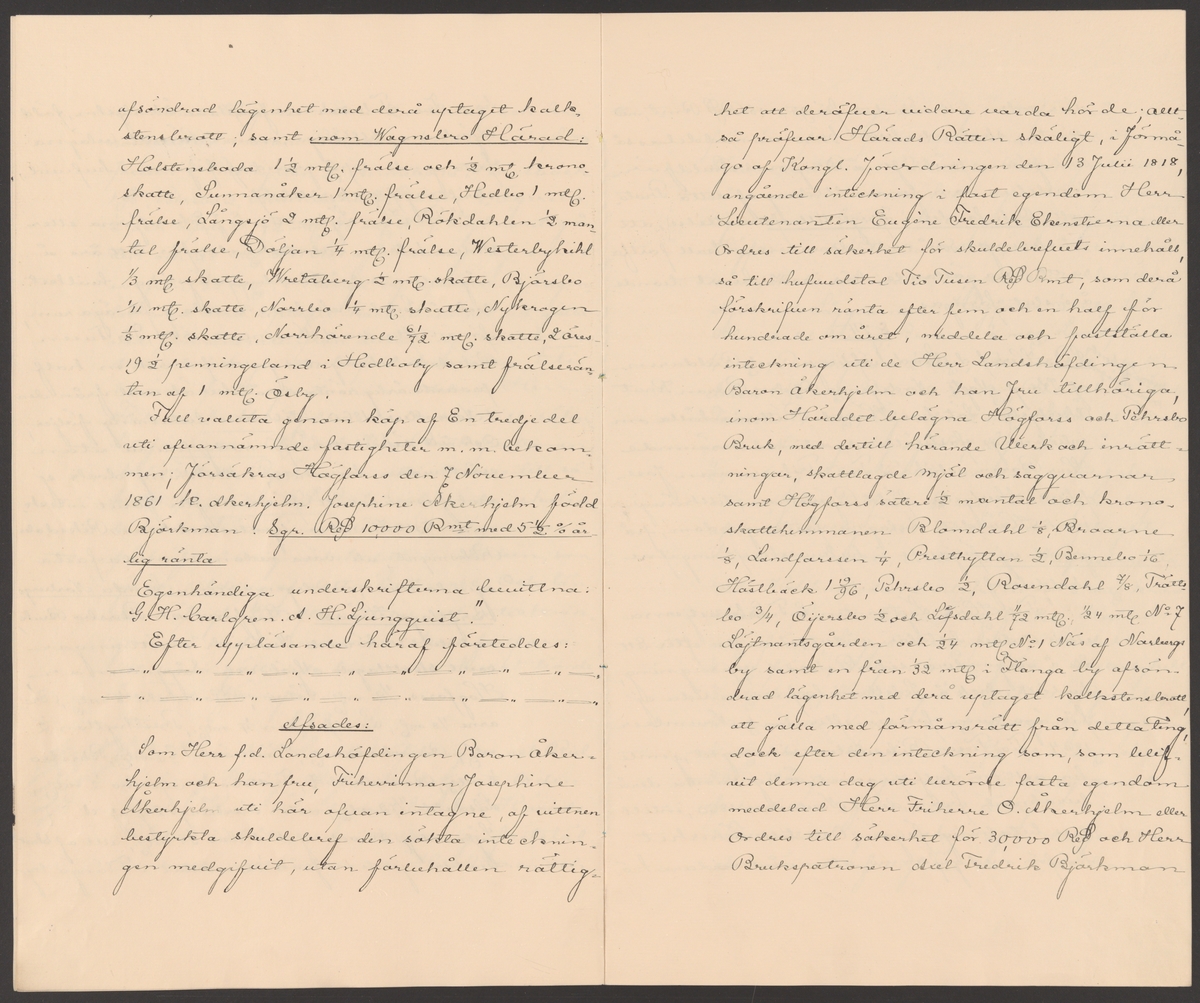 afsöndrad lägenhet med derå uptaget kalk-
stensbrott; samt inom Wagnsbro Härad:
Holstensboda 1 1/2 mtl. frälse och 1/2 mtl. krono-
skatte, Sunnanåker 1 mtl. frälse, Hedbo 1 mtl.
frälse, Långsjö 2 mtl. frälse, Rökdahlen 1/2 man-
tal frälse, Döljan 1/4 mtl. frälse, Westerbykihl
1/3 mtl skatte, Wretaberg 1/2 mtl. skatte, Björsbo
1/11 mtl. skatte, Norrbo 1/4 mtl. skatte, Nykrogen
1/8 mtl. skatte, Norrhärende 61/72 mtl. skatte, 2 öres-
19 1/2 penningeland i Hedboby samt frälserän-
tan af 1 mtl. Ösby.
Full valuta genom köp af En tredjedel
uti ofvannämnde fastigheter m. m. bekom-
men; försäkras Högforss den 7 November
1861 Åkerhjelm. Josephine Åkerhjelm född
Björkman. Sgr. Rdr 10,000 Rmt med 5 1/2 % år-
lig ränta
Egenhändiga underskrifterna bevittna:
G. H. Carlgren. A. H. Ljungquist."
Efter uppläsande häraf företeddes:
— " — " — " — " — " — " — " — " —
— " — " — " — " — " — " — " — " —
Afsades:
Som Herr f.d. Landshöfdingen Baron Åker-
hjelm och han fru, Friherrinnan Josephine
Åkerhjelm uti här ofvan intagne, af vittnen
bestyrkta skuldebref den sökta intecknin-
gen medgifvit, utan förbehållen rättig-
het att deröfver vidare varda hörde; allt-
så pröfvar Härads Rätten skäligt, i förmå-
go af Kongl. Förordningen den 13 Julii 1818,
angående inteckning i fast egendom Herr
Lieutenanten Eugène Fredrik Ekenstierna eller
Ordres till säkerhet för skuldebrefvets innehåll,
så till hufvudstol Tio Tusen Rdr Rmt, som derå
förskrifven ränta efter fem och en half för
hundrade om året, meddela och fastställa
inteckning uti de Herr Landshöfdingen
Baron Åkerhjelm och han Fru tillhöriga,
inom Häradet belägna Högforss och Pehrsbo
Bruk, med dertill hörande Werk och inrätt-
ningar, skattlagde mjöl och sågqvarnar
samt Högforss säteri 1/2 mantal och krono-
skattehemmanen Blomdahl 1/8, Broarne
1/8, Landforssen 1/4, Presthyttan 1/2, Bennebo 1/6,
Hästbäck 1, Pehrsbo 1/2, Rosendahl 7/8, Trätt-
bo 3/4, Öijersbo 1/2 och Löfsdahl 11/72 mtl. 1/24 mtl No 7
Löjtnantsgården och 1/24 mtl No 1 Näs af Norbergs
by samt en från 1/32 mtl i Flänga by afsön-
drad lägenhet med derå uptaget kalkstensbrott,
att gälla med förmånsrätt från detta Ting,
dock efter den inteckning som, som blif-
vit denna dag uti berörde fasta egendom
meddelad Herr Friherre O. Åkerhjelm eller
Ordres till säkerhet för 30,000 Rdr och Herr
Brukspatronen Axel Fredrik Björkman